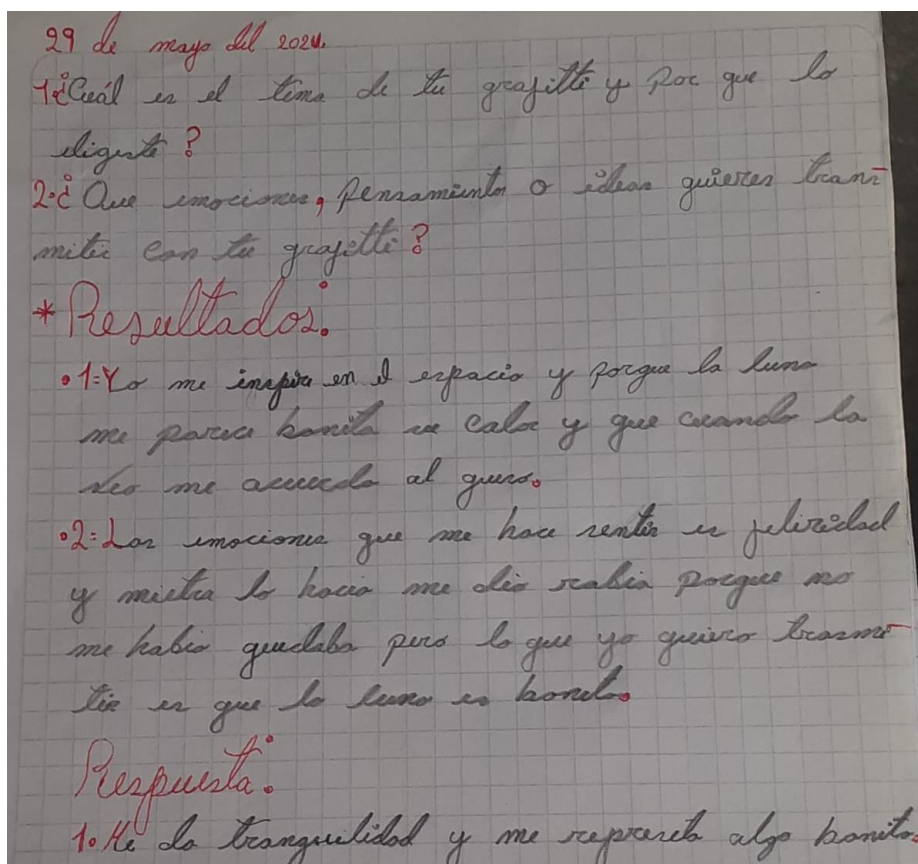 29 de mayo del 2024.
1.¿Cuál es el tema de tu grafitti y por que lo
eligiste?
2.¿Que emociones, pensamiento o ideas quieres trans-
mitir con tu grafitti?
* Resultados:
•1=Yo me inspire en el espacio y porque la luna
me parece bonita su calor y que cuando la
veo me acuerdo al
•2=Las emociones que me hace sentir es felicidad
y mietra lo hacia me dio rabia porque no
me habia quedaba pero lo que yo quiero trasmi-
tir es que la luna es bonita.
Respuesta:
1. Me da tranquilidad y me representa algo bonito.